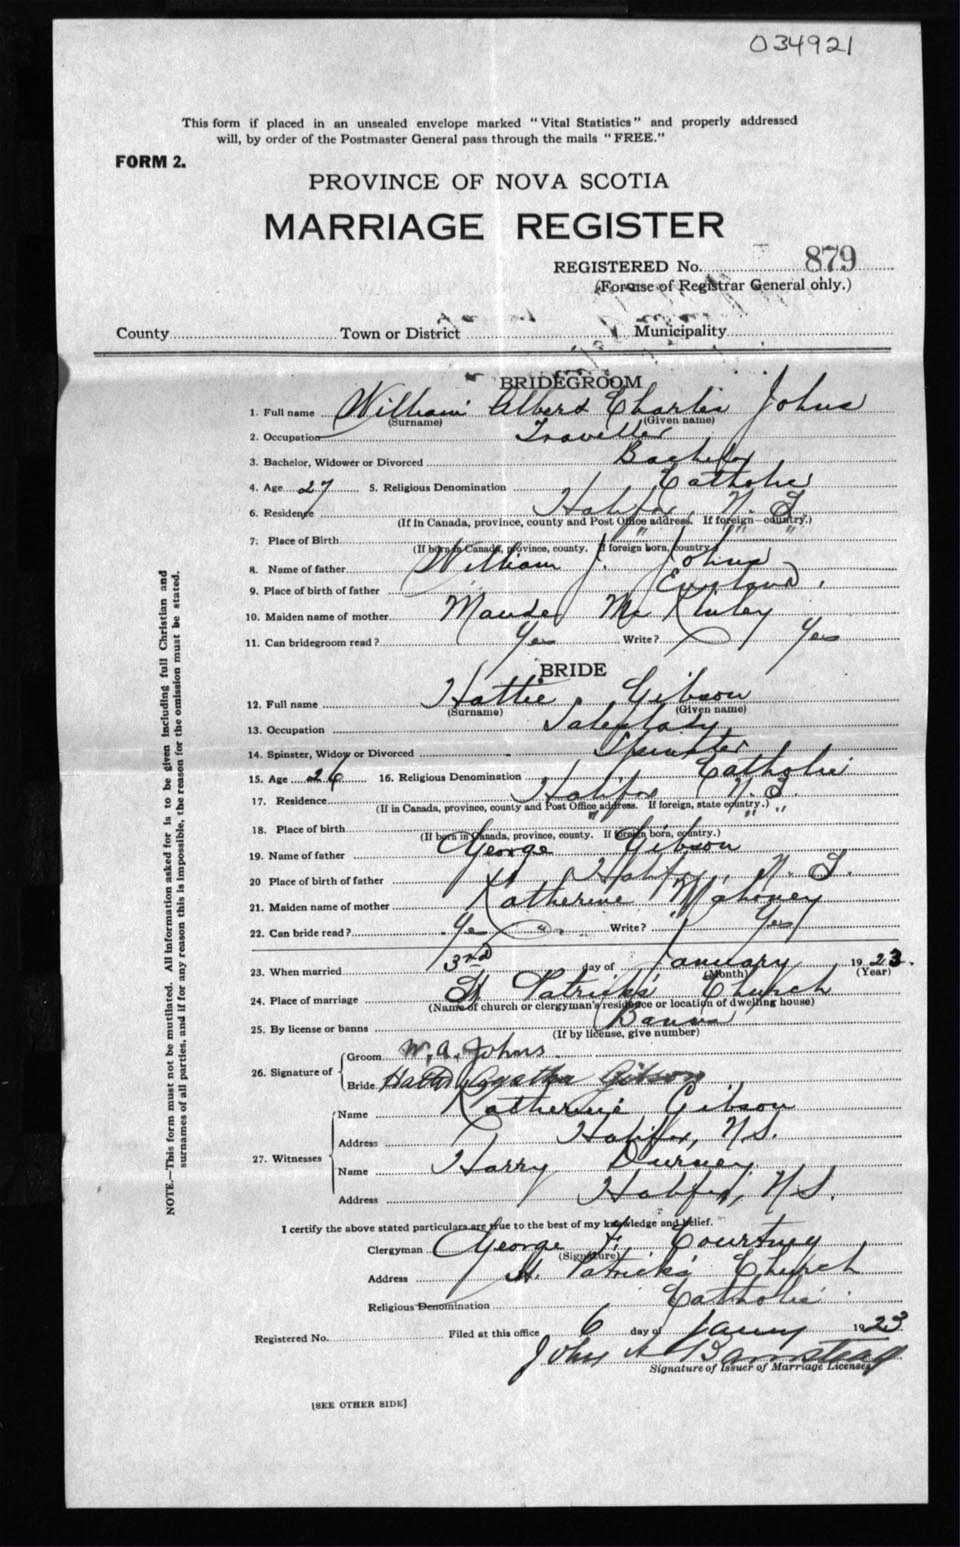 034921
This form if placed in an unsealed envelope marked "Vital Statistics" and properly addressed
will, by order of the Postmaster General pass through the mails "FREE."
FORM 2.
PROVINCE OF NOVA SCOTIA
MARRIAGE REGISTER
REGISTERED No. 879
(For use of Registrar General only.)
County Town or District Municipality
BRIDEGROOM
1. Full name William Albert Charles Johns
(Surname) (Given name)
2. Occupation Traveller
3. Bachelor, Widower or Divorced Bachelor
4. Age 27 5. Religious Denomination Catholic
6. Residence Halifax, N. S.
(If in Canada, province, county and Post Office address. If foreign—country.)
7. Place of Birth " " "
(If born in Canada, province, county. If foreign born, country.)
8. Name of father William J. Johns
9. Place of birth of father England.
10. Maiden name of mother Maude Mc Kinley
11. Can bridegroom read? Yes Write? Yes
BRIDE
12. Full name Hattie Gibson
(Surname) (Given name)
13. Occupation Saleslady
14. Spinster, Widow or Divorced Spinster
15. Age 26 16. Religious Denomination Catholic
17. Residence Halifax N. S.
(If in Canada, province, county and Post Office address. If foreign, state country.)
18. Place of birth " " "
(If born in Canada, province, county. If foreign born, country.)
19. Name of father George Gibson
20 Place of birth of father Halifax, N. S.
21. Maiden name of mother Katherine Mahoney
22. Can bride read? Yes Write? Yes
23. When married 3rd day of January 1923.
(Month) (Year)
24. Place of marriage St Patrick's Church
(Name of church or clergyman's residence or location of dwelling house)
25. By license or banns Banns
(If by license, give number)
26. Signature of Groom W. A. Johns.
Bride Hattie Agatha Gibson
27. Witnesses Name Katherine Gibson
Address Halifax, N.S.
Name Harry Durney
Address Halifax, N.S.
I certify the above stated particulars are true to the best of my knowledge and belief.
Clergyman George F. Courtney
(Signature)
Address St. Patrick's Church
Religious Denomination Catholic
Registered No. Filed at this office 6 day of Jany 1923
John A Barnstead
Signature of Issuer of Marriage Licenses
[SEE OTHER SIDE]
NOTE.—This form must not be mutilated. All information asked for is to be given including full Christian and
surnames of all parties, and if for any reason this is impossible, the reason for the omission must be stated.